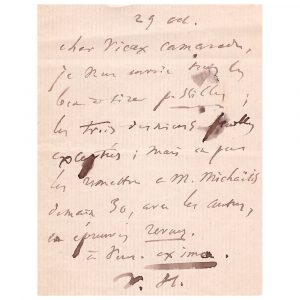 29 oct.
cher vieux camarade,
je vous envoie tous les
bon à tirer
les trois derniers
exceptés ; mais on peut
les remettre à M. Michaëlis
demain 30, avec les autres,
en épreuves revues.
à vous ex imo.
V. H.